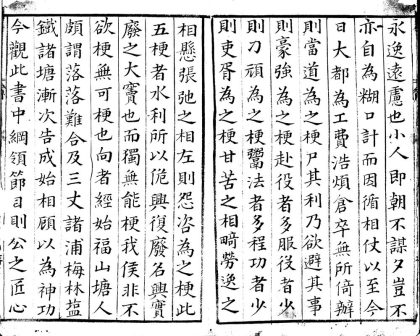 永逸遠慮也小人即朝不謀夕豈不
亦自為糊口計而因循相仗以至今
日大都為工費浩煩倉卒無所倚辦
則當道為之梗尸其利乃欲避其事
則豪強為之梗赴役者多服役者少
則刀頑為之梗鬻法者多程功者少
則吏胥為之梗甘苦之相畸勞逸之
相懸張弛之相左則怨咨為之梗此
五梗者水利所以俛興復廢名興實
廢之大竇也而獨無能梗我侯非不
欲梗無可梗也向者經始福山塘人
頗謂落落難合及三丈諸浦梅林塩
鐵諸塘漸次告成始相顧以為神功
今觀此書中綱領節目則公之匠心